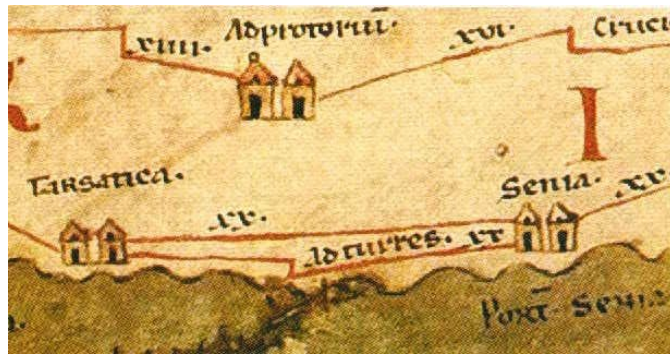 Adprotoriū.
XIIII.
XVI.
Cruci
I
Tarsatica.
Senia.
XX.
XX.
Adturres. XX
Port̄. Senia